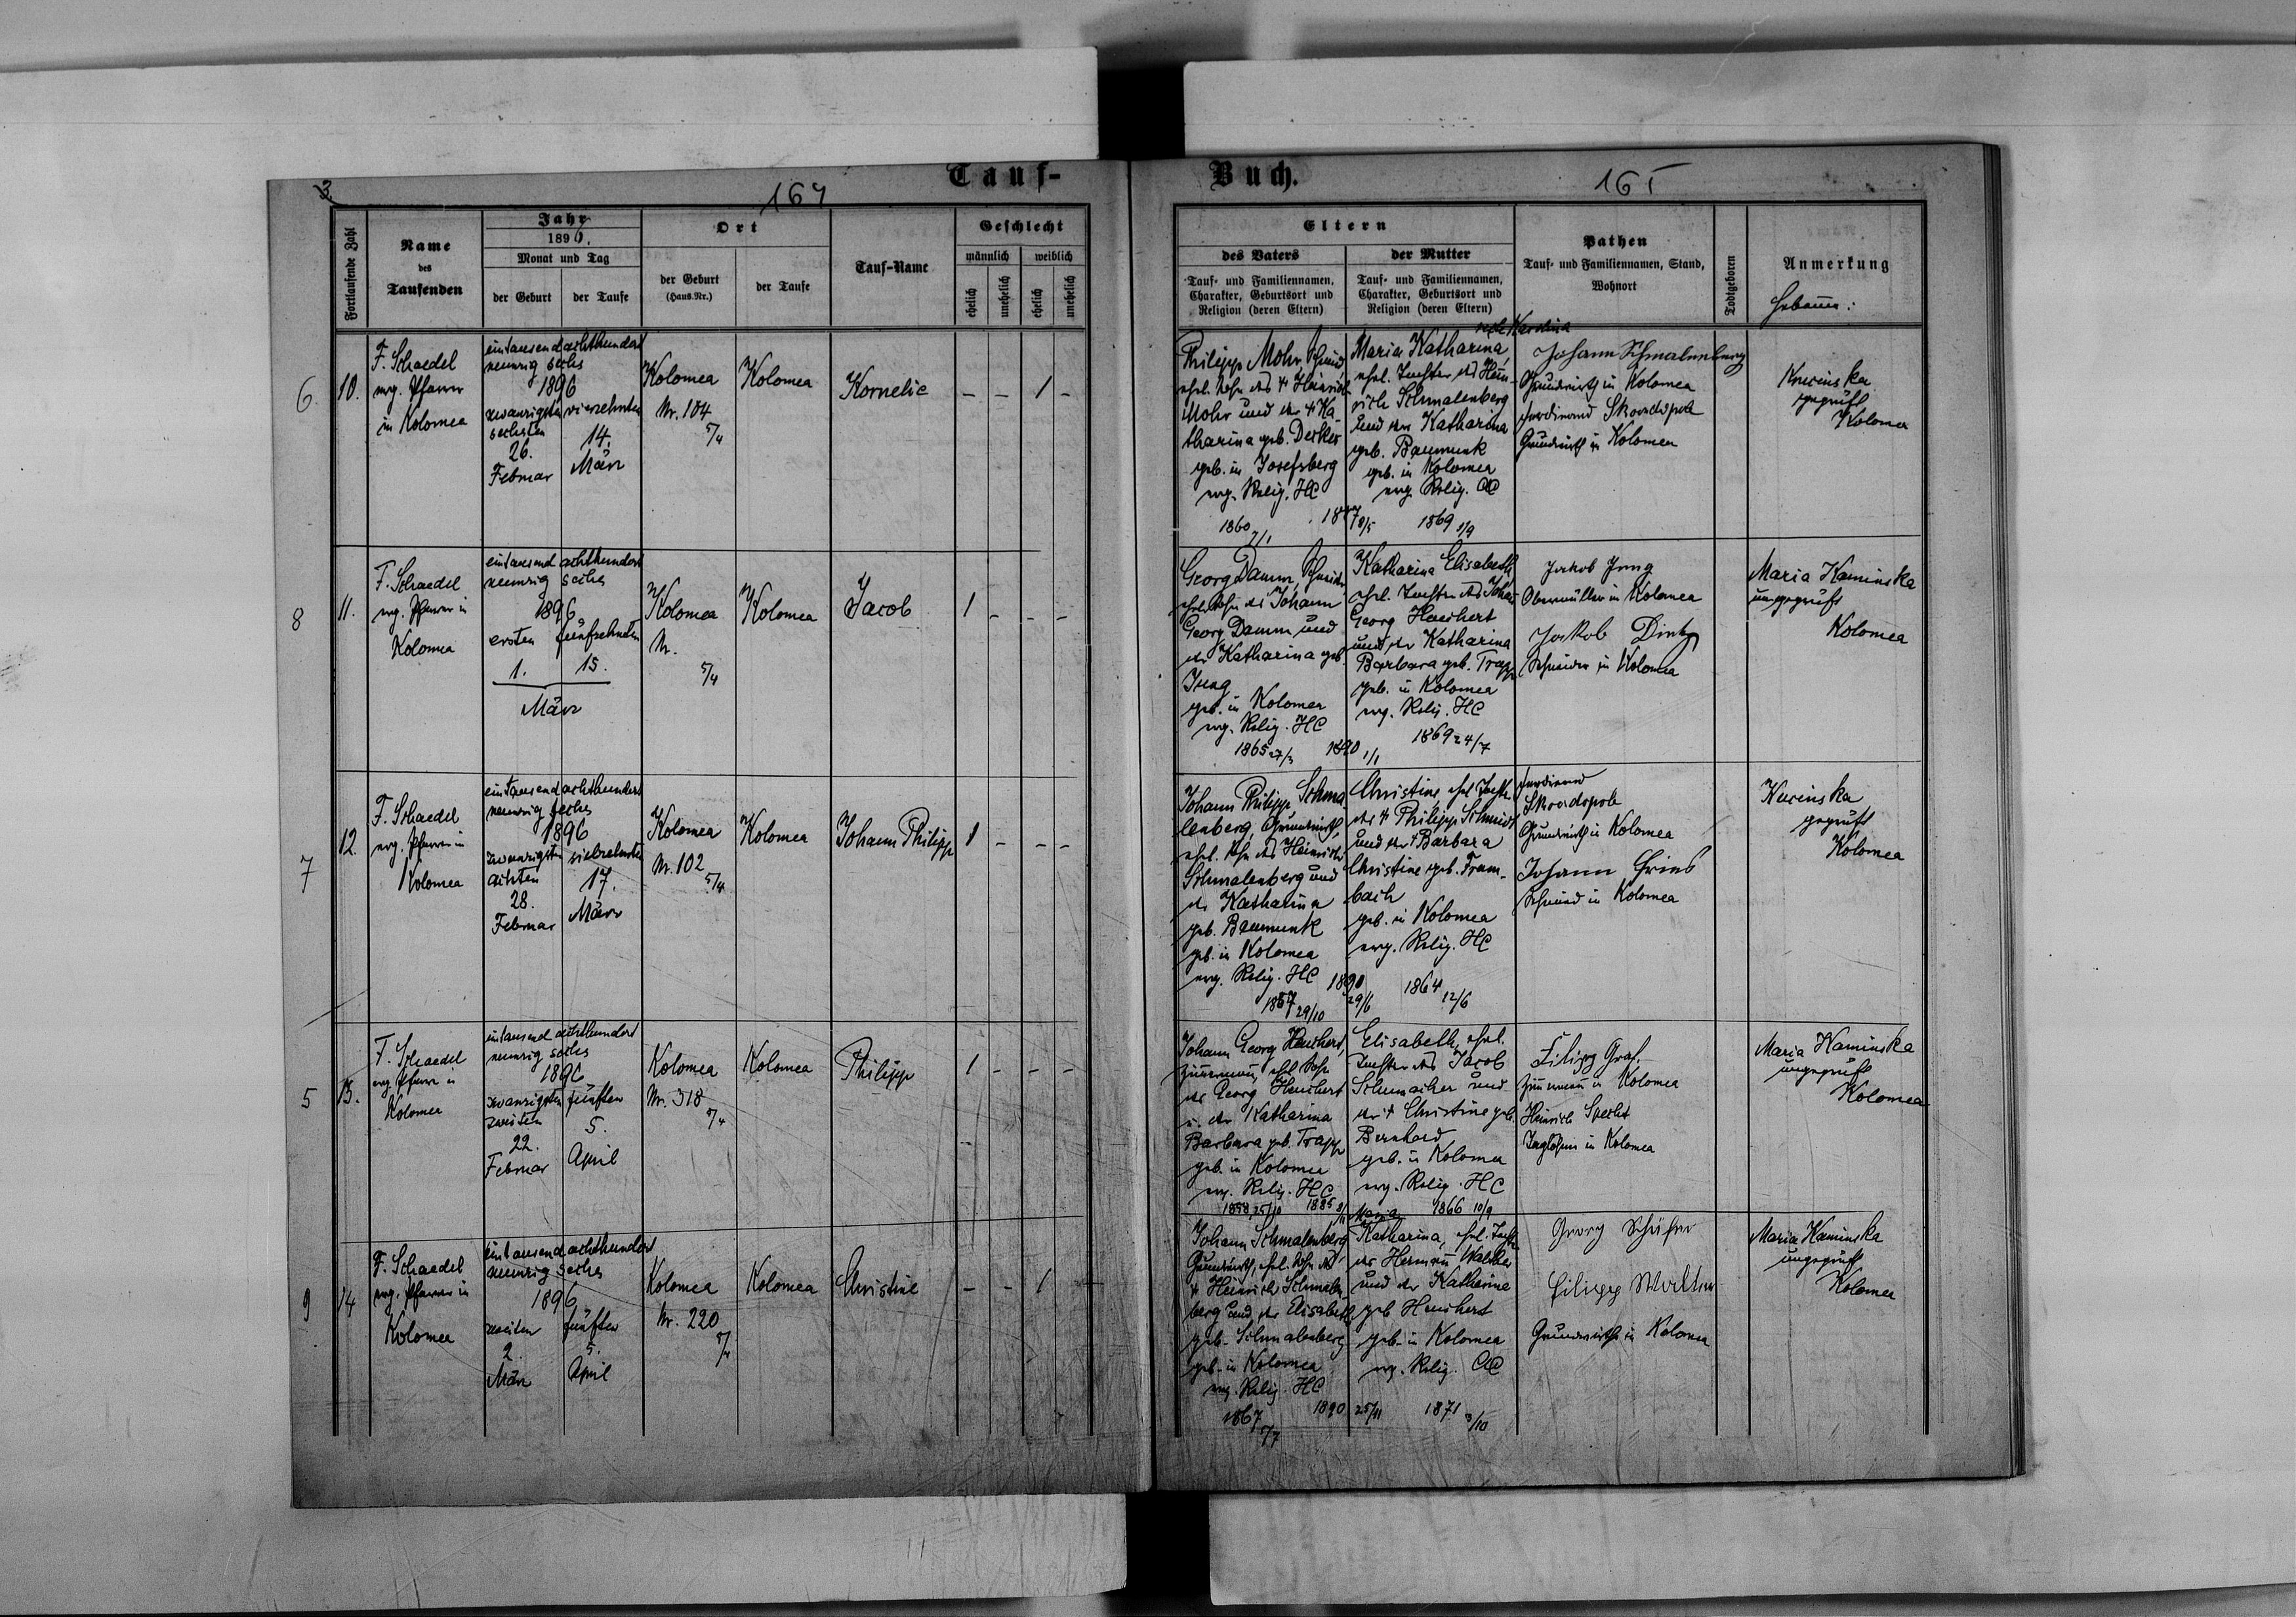 3.
164
Tauf-
Fortlaufende Zahl
Name
des
Taufenden
Jahr
1896.
Monat und Tag
der Geburt
der Taufe
Ort
der Geburt
(Haus-Nr.)
der Taufe
Tauf-Name
Geschlecht
männlich
weiblich
ehelich
unehelich
ehelich
unehelich
6
10.
F. Schaedel
evg. Pfarrer
in Kolomea
eintausend achthundert
neunzig sechs
1896
zwanzigsten vierzehnten
sechsten
26. 14.
Februar März
Kolomea
Nr. 104
5/4
Kolomea
Kornelie
- - 1 -
8
11.
F. Schaedel
evg. Pfarrer in
Kolomea
eintausend achthundert
neunzig sechs
1896
ersten fünfzehnten
1. 15.
März
Kolomea
Nr.
5/4
Kolomea
Jacob
1 - - -
7
12.
F. Schaedel
evg. Pfarrer in
Kolomea
eintausend achthundert
neunzig sechs
1896
zwanzigsten siebzehnten
achten 17.
28.
Februar März
Kolomea
Nr. 102
5/4
Kolomea
Johann Philipp
1 - - -
5
13.
F. Schaedel
evg. Pfarrer in
Kolomea
eintausend achthundert
neunzig sechs
1896
zwanzigsten fünften
zweiten 5.
22.
Februar April
Kolomea
Nr. 318
5/4
Kolomea
Philipp
1 - - -
9
14
F. Schaedel
evg. Pfarrer in
Kolomea
eintausend achthundert
neunzig sechs
1896
zweiten fünften
2. 5.
März April
Kolomea
Nr. 220
Kolomea
Christine
- - 1
Buch.
165
Eltern
des Vaters
Tauf- und Familiennamen,
Charakter, Geburtsort und
Religion (deren Eltern)
der Mutter
Tauf- und Familiennamen,
Charakter, Geburtsort und
Religion (deren Eltern)
Pathen
Tauf- und Familiennamen, Stand,
Wohnort
Todtgeboren
Anmerkung
Hebamme:
Philipp Mohr, Schmied
ehel. Sohn des † Heinrich
Mohr und der † Ka
tharina geb. Decker
geb. in Josefsberg
evg. Relig. HC
1860
Karolina
Maria Katharina,
ehel. Tochter des Hein-
rich Schmalenberg
und der Katharina
geb. Baumunk
geb. in Kolomea
evg. Relig. AC
8/5 1869 1/9
Johann Schmalenberg
Grundwirth in Kolomea
Ferdinand Skoordopole
Grundwirth in Kolomea
geprüft
Kolomea
Georg Damm,
ehel. Sohn des Johann
Georg Damm und
der Katharina geb.
Jung
geb. in Kolomea
evg. Relig. HC
1865 27/3 1890 1/1
Katharina Elisabeth
ehel. Tochter des Johann
Georg Heuchert
und der Katharina
Barbara geb. Trapp
geb. in Kolomea
evg. Relig. HC
1869 24/7
Jakob Jung
Obermüller in Kolomea
Jakob
Schneider in Kolomea
Maria Kaminska
ungeprüft
Kolomea
Johann Philipp Schma
lenberg, Grundwirth,
ehel. Sohn des Heinrich
Schmalenberg und
der Katharina
geb. Baumunk
geb. in Kolomea
evg. Relig. HC 1890
1867 29/10 29/6
Christine ehel. Tocht.
des † Philipp Schmidt
und der † Barbara
Christine geb. Fram-
bach
geb. in Kolomea
evg. Relig. HC
1864 12/6
Ferdinand
Skoordopole
Grundwirth in Kolomea
Johann
Schmied in Kolomea
geprüft
Kolomea
Johann Georg Heuchert,
Zimmermann, ehel. Sohn
des Georg Heuchert
u. der Katharina
Barbara geb. Trapp
geb. in Kolomea
evg. Relig. HC
1858 25/10 1885
Elisabeth, ehel.
Tochter des Jacob
Schumacher und
der † Christine geb.
Bernhard
geb. in Kolomea
evg. Relig. HC
1866 10/9
Filipp Graf,
Zimmermann in Kolomea
Heinrich Specht
Taglöhner in Kolomea
Maria Kaminska
ungeprüft
Kolomea
Johann Schmalenberg
Grundwirth, ehel. Sohn des
† Heinrich Schmalen-
berg und der Elisabeth
geb. Schmalenberg
geb. in Kolomea
evg. Relig. HC
1867 1890 25/11
Maria
Katharina, ehel. Tocht.
des Hermann Walther
und der Katharina
geb. Heuchert
geb. in Kolomea
evg. Relig. AC
1871
Georg Schäfer
Filipp
Grundwirthe in Kolomea
Maria Kaminska
ungeprüft
Kolomea